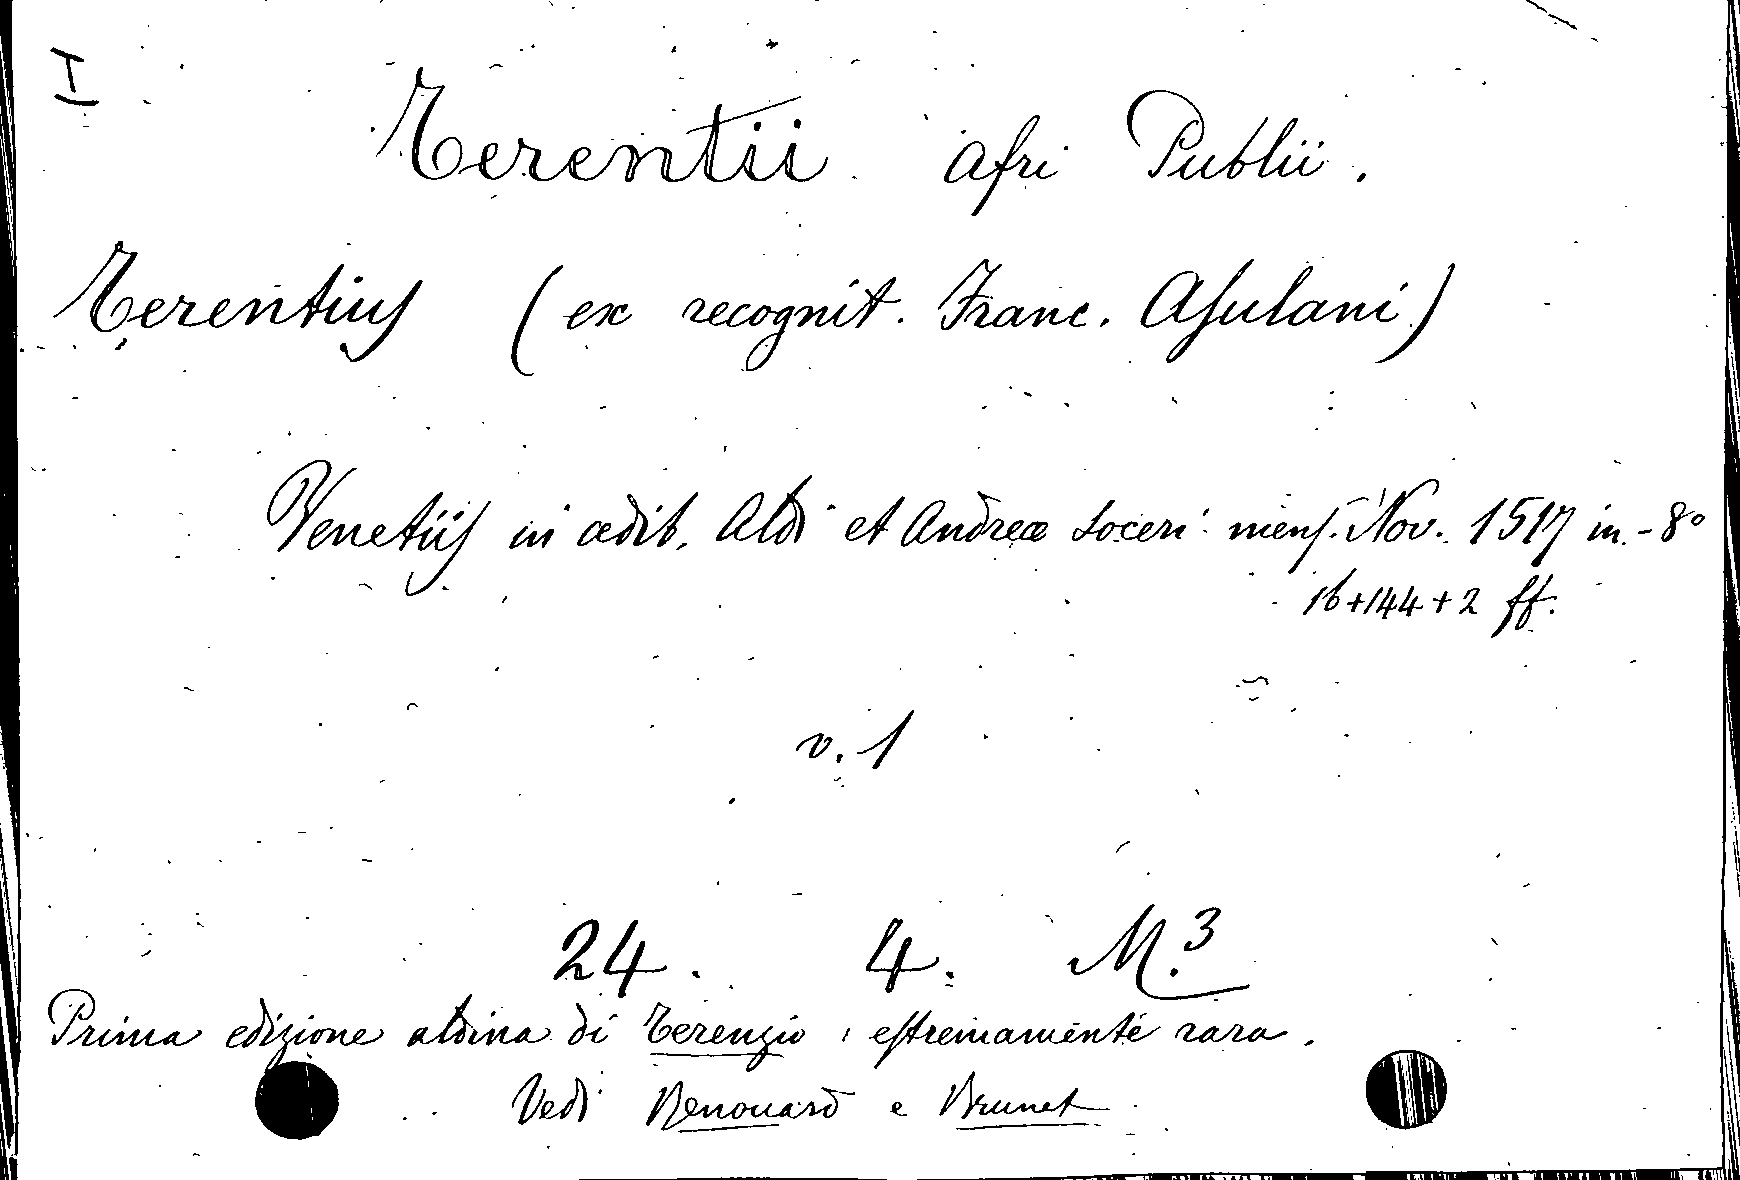 I
Terentii Afri Publii.
Terentius (ex recognit. Franc. Asulani)
Venetiis in ædib. Aldi et Andreæ Soceri mens. Nov. 1517 in-8°
16+144+2 ff.
v. 1
24. 4. M.3
Prima edizione aldina di Terenzio: estremamente rara.
Vedi Renouard e Brunet